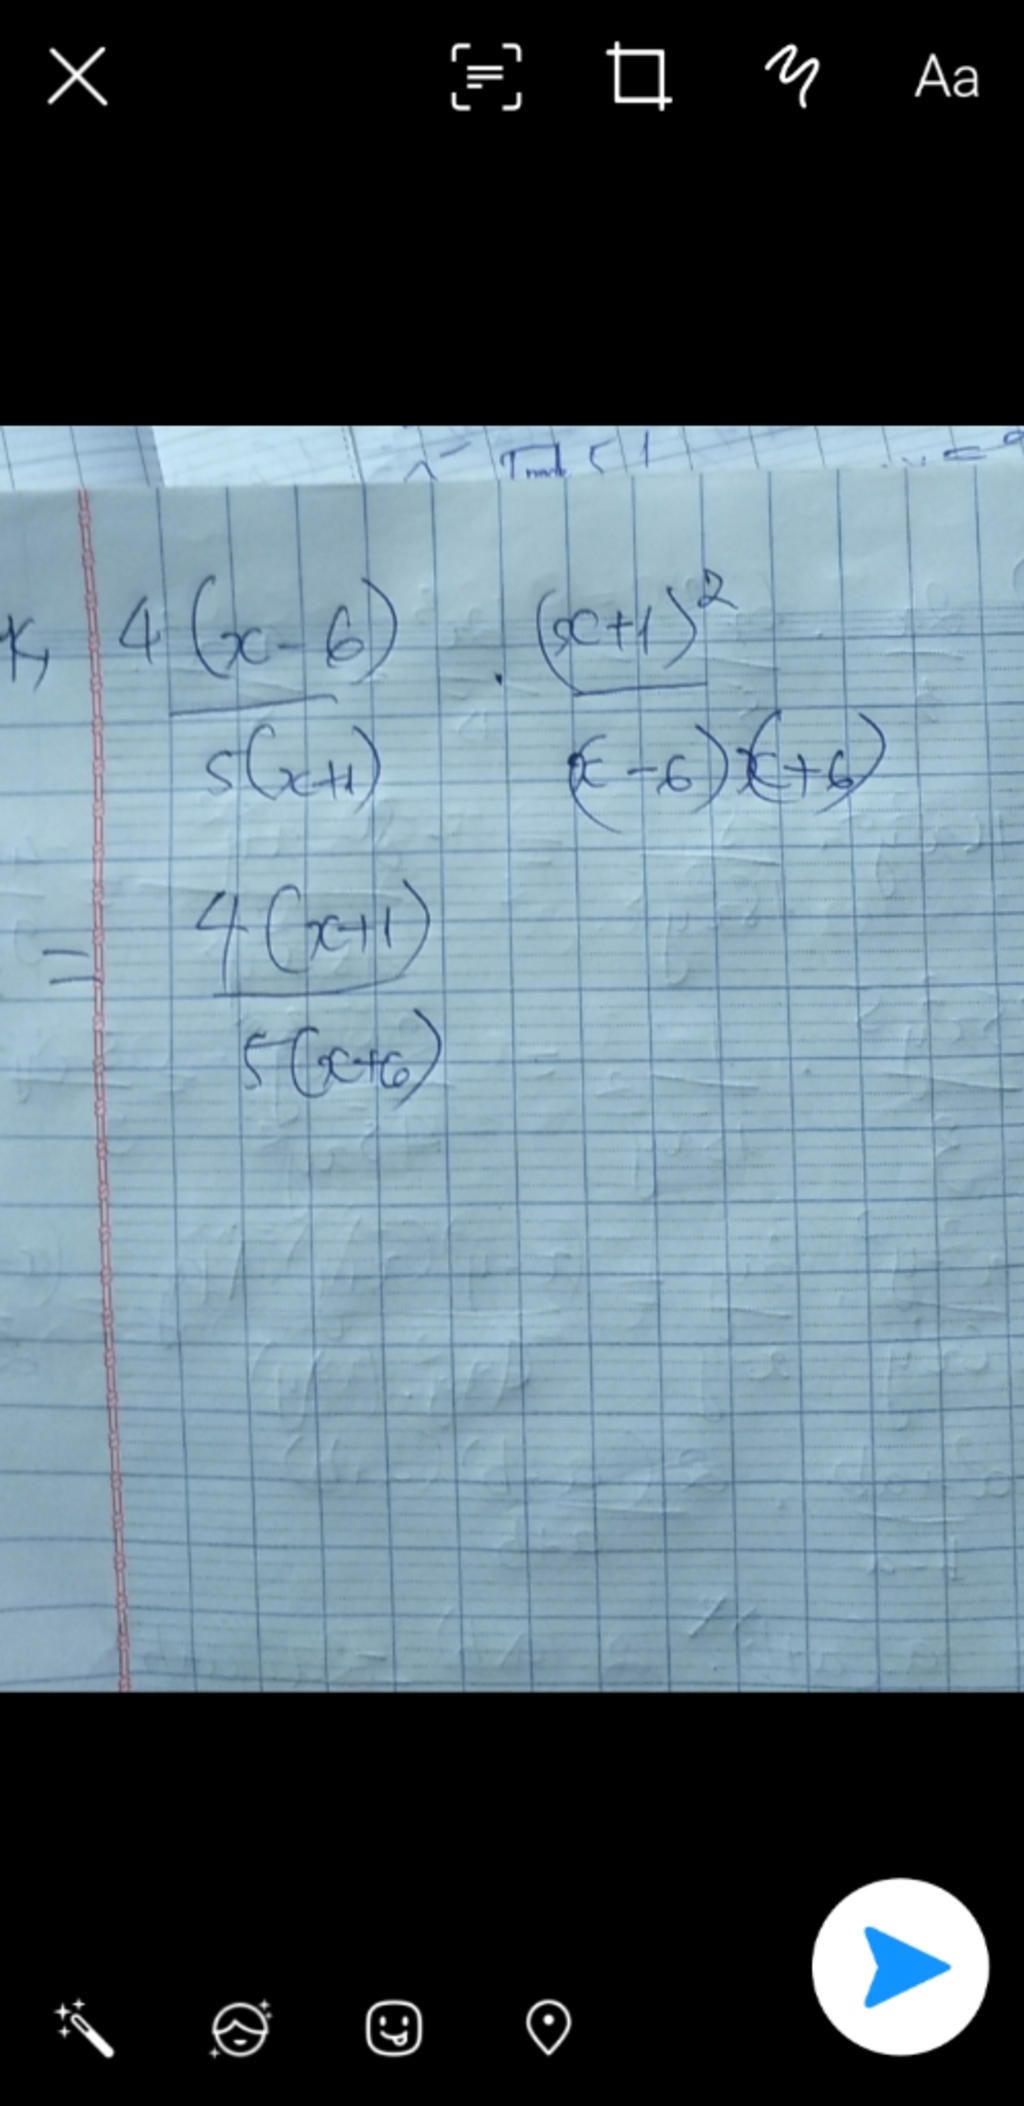 Aa
k, 4(x-6) . (x+1)²
5(x+1) (x-6)(x+6)
= 4(x+1)
5(x+6)